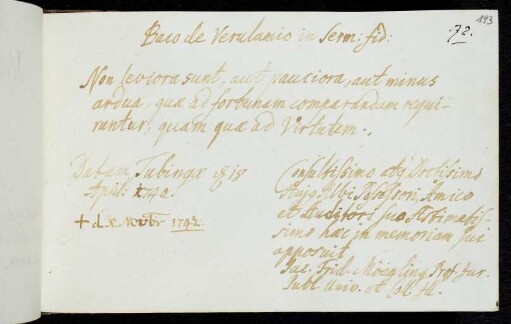 193
72.
Baco de Verulamio in Serm: fid:
Non leviora sunt, aut pauciora, aut minus
ardua, quæ ad fortunam comparandam requi-
runtur, quam quæ ad Virtutem.
Datam Tubingæ
April: 1742.
+ d. Novbr 1742.
Consultissimo atq Doctissimo
Possessori, Amico
et suo Æstimatis-
simo hæc in memoriam sui
apposuit
Jac. Frid. Mögling Prof. Jur.
Publ. Univ. et